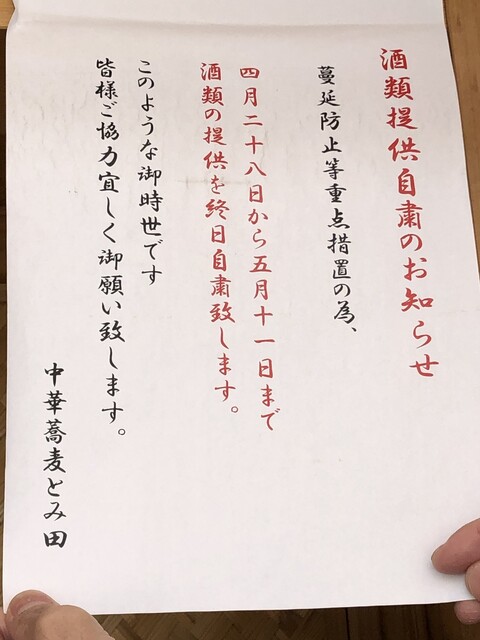 酒類提供自粛のお知らせ
蔓延防止等重点措置の為、
四月二十八日から五月十一日まで
酒類の提供を終日自粛致します。
このような御時世です
皆様ご協力宜しく御願い致します。
中華蕎麦とみ田